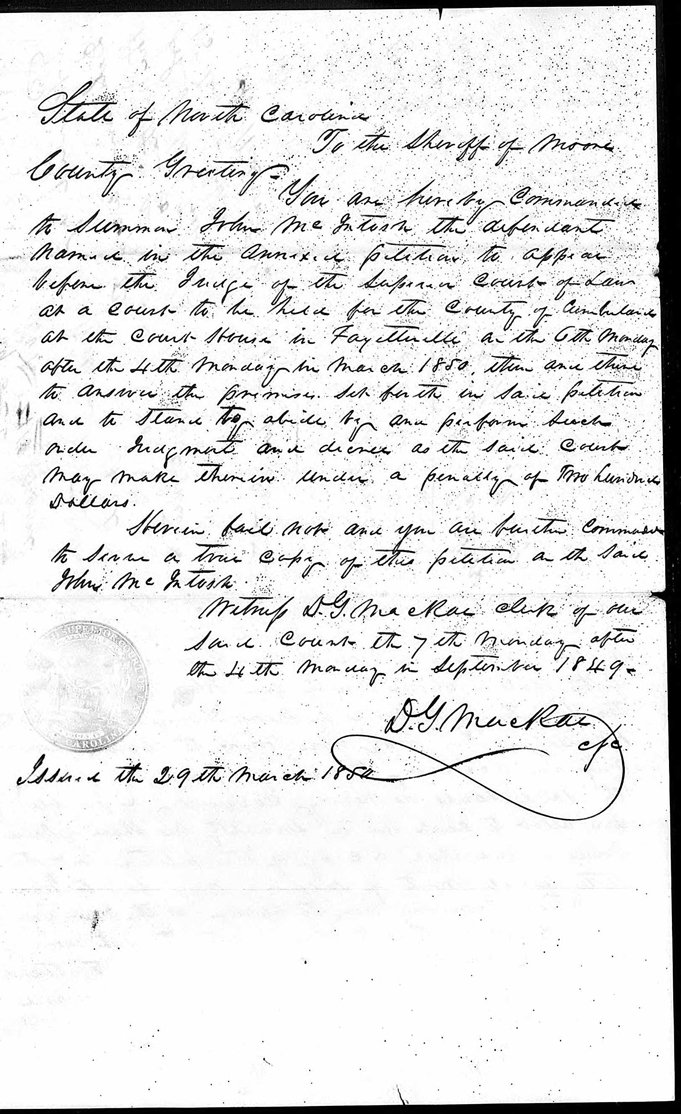 State of North Carolina
To the Sheriff of Moore
County Greeting
You are hereby Commanded
to Summon John McIntosh the defendant
named in the annexed petition to appear
before the Judge of the Superior Court of Law
at a Court to be held for the County of Cumberland
at the Court House in Fayetteville on the 6th Monday
after the 4th Monday in March 1850, then and there
to answer the premises set forth in said petition
and to stand to abide by and perform such
order Judgment and decree as the said Court
may make therein under a penalty of Two hundred
Dollars.
Herein fail not and you are further Commanded
to serve a true copy of this petition on the said
John McIntosh.
Witness D.G. MacRae clerk of our
said Court the 7th Monday after
the 4th Monday in September 1849.
D.G. MacRae
Issued the 29th March 1850
CAROLINA